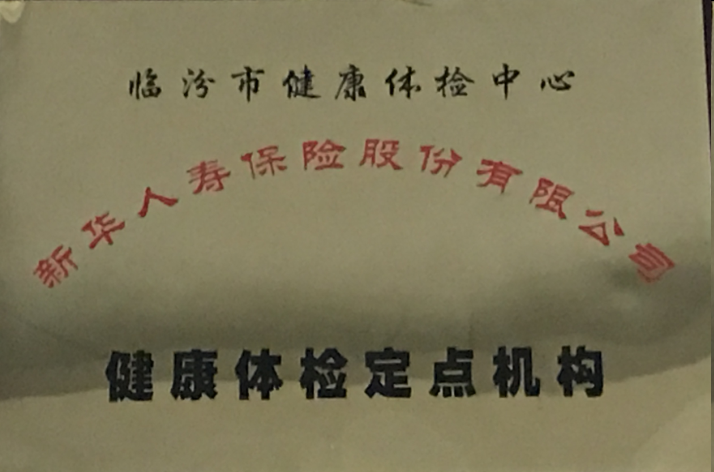 临汾市健康体检中心
新华人寿保险股份有限公司
健康体检定点机构